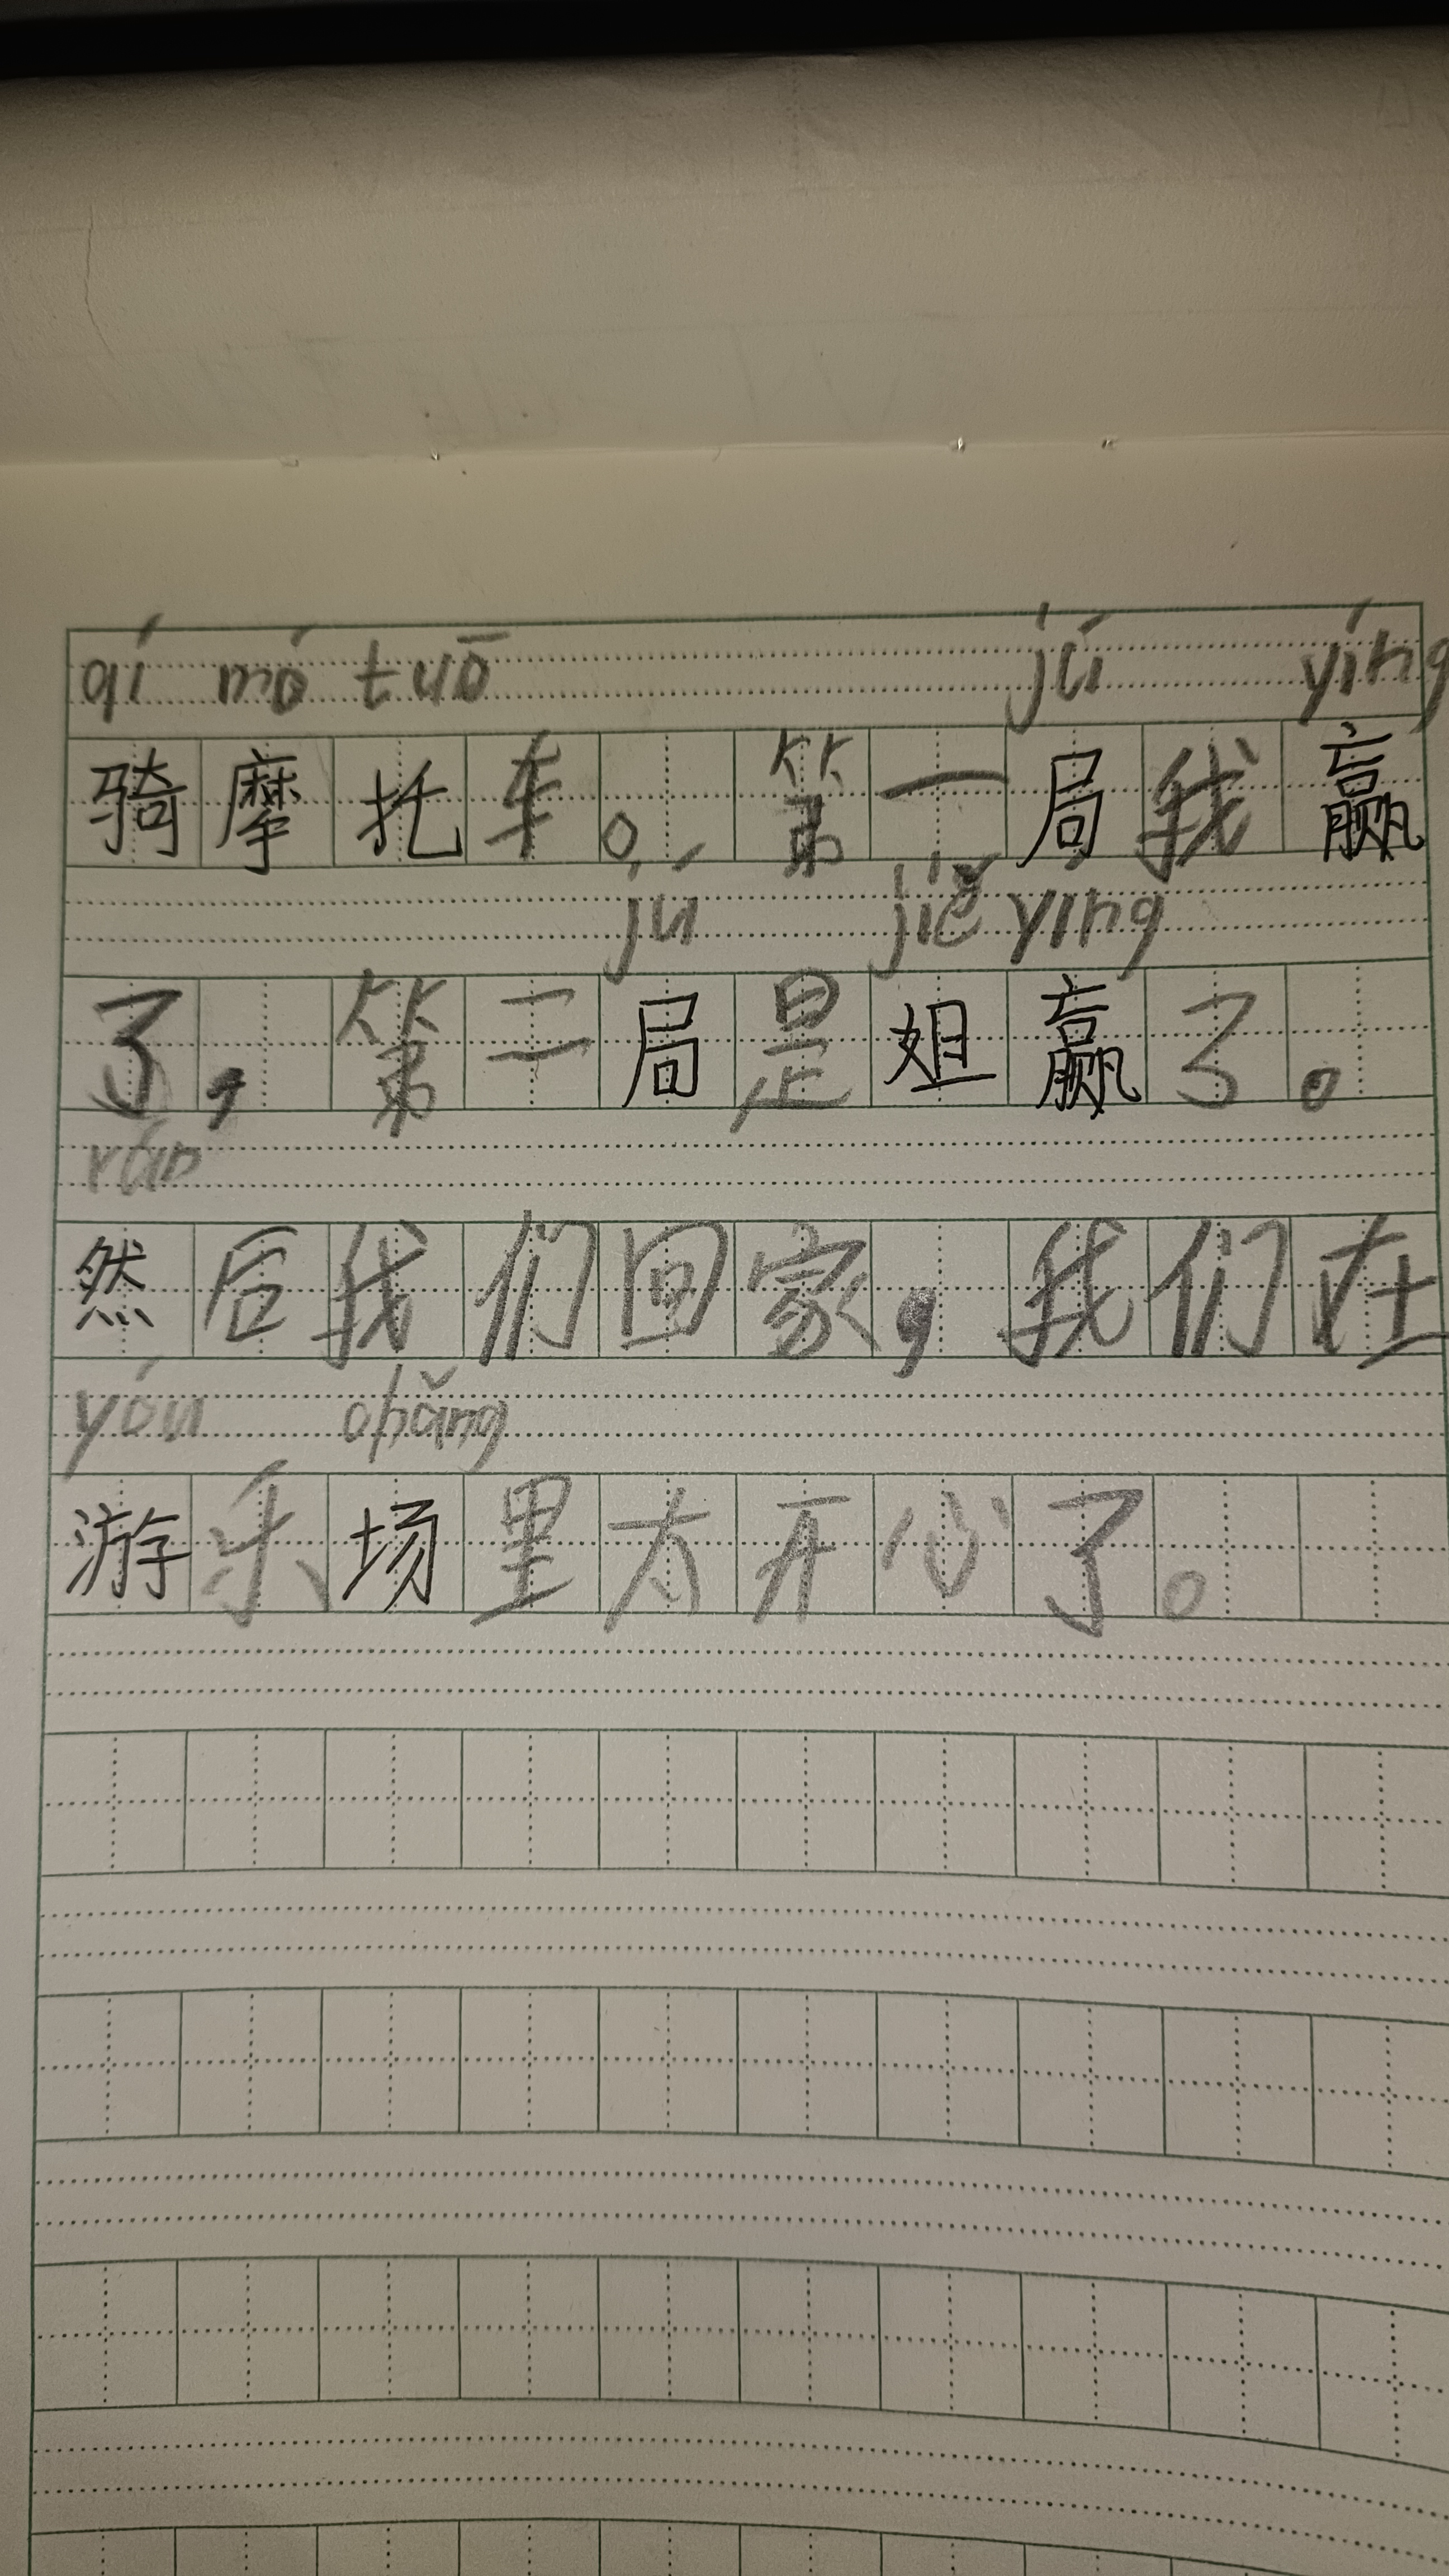 qí mó tuō jú yíng
骑摩托车。第一局我赢
jú jiě yíng
了,第二局是姐赢了。
rán
然后我们回家,我们在
yóu chǎng
游乐场里太开心了。